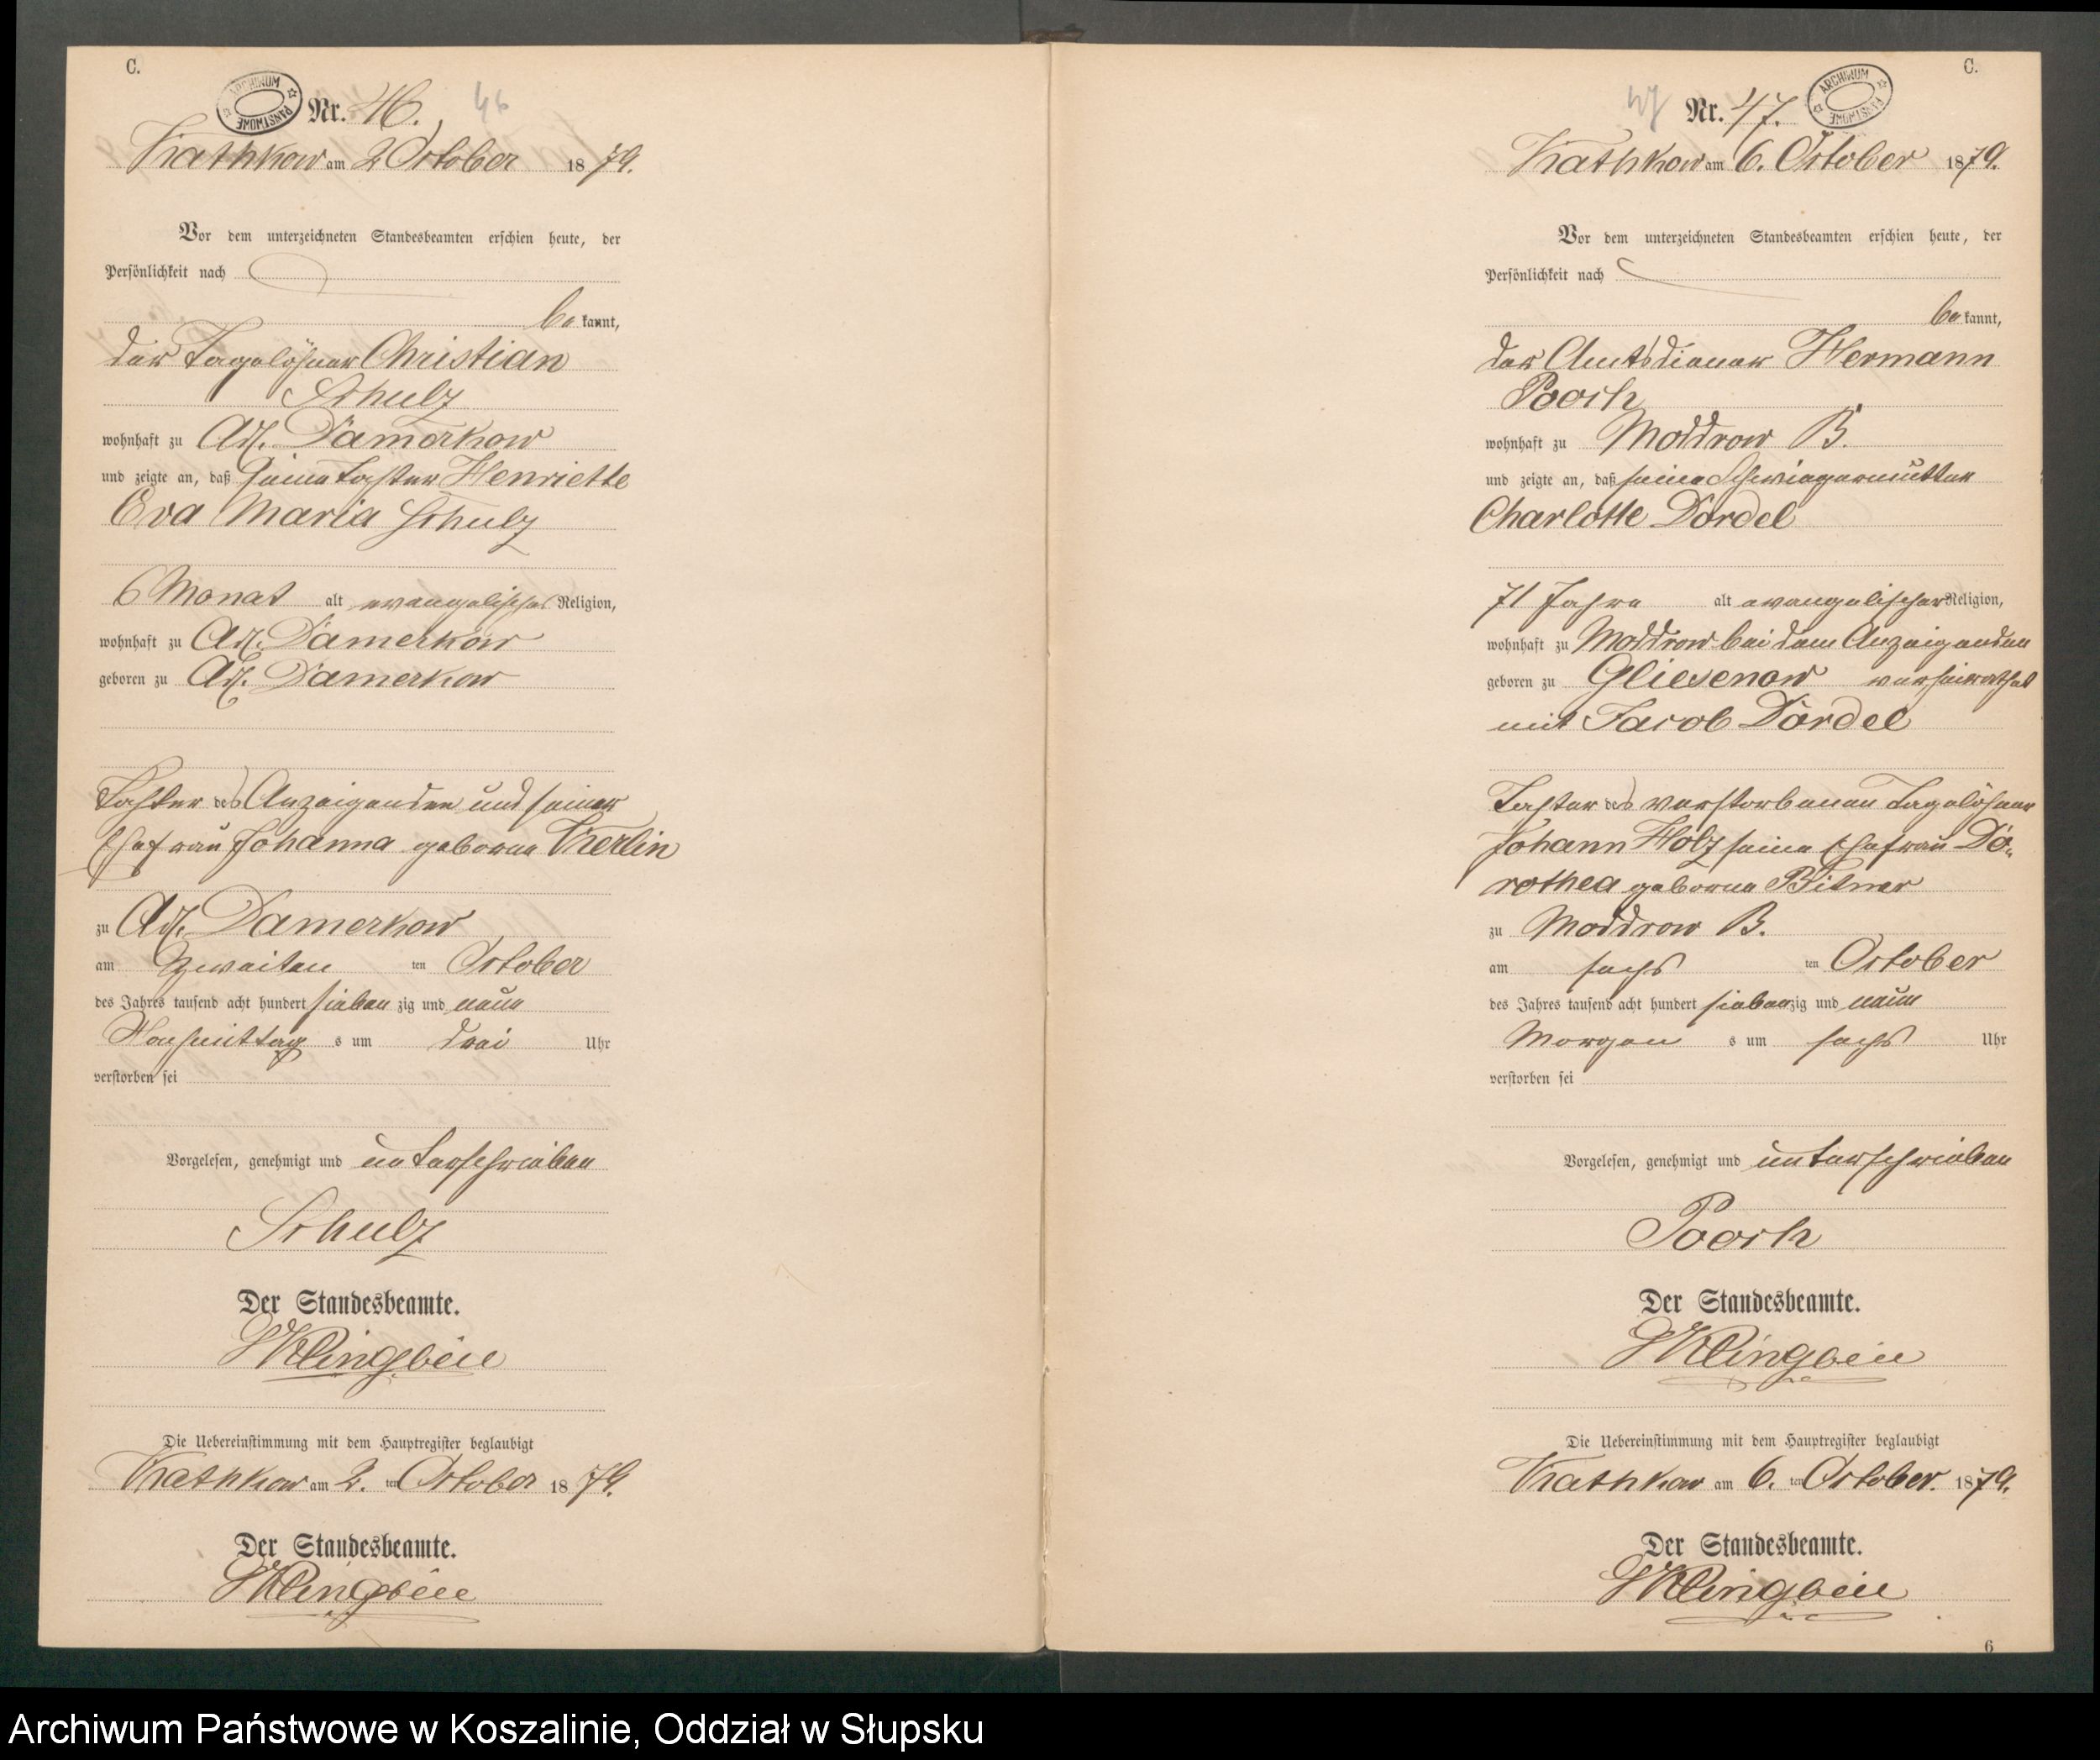 C.
ARCHIWUM PAŃSTWOWE
Nr. 46.
46
Krathkow am 2 October 1879.
Vor dem unterzeichneten Standesbeamten erschien heute, der
Persönlichkeit nach
bekannt,
der Tagelöhner Christian
Schulz
wohnhaft zu Adl. Damerkow
und zeigte an, daß seine Tochter Henriette
Eva Maria Schulz
6 Monat alt evangelischer Religion,
wohnhaft zu Adl. Damerkow
geboren zu Adl. Damerkow
Tochter des Anzeigenden und seiner
Ehefrau Johanna geborne
zu Adl. Damerkow
am Zweiten ten October
des Jahres tausend acht hundert sieben zig und neun
Nachmittag s um drei Uhr
verstorben sei
Vorgelesen, genehmigt und unterschrieben
Schulz
Der Standesbeamte.
Klingbeil
Die Uebereinstimmung mit dem Hauptregister beglaubigt
Krathkow am 2. ten October 1879.
Der Standesbeamte.
Klingbeil
C.
ARCHIWUM PAŃSTWOWE
47
Nr. 47.
Krathkow am 6. October 1879.
Vor dem unterzeichneten Standesbeamten erschien heute, der
Persönlichkeit nach
bekannt,
der Amtsdiener Hermann
Pooch
wohnhaft zu Moddrow B.
und zeigte an, daß seine Schwiegermutter
Charlotte Dördel
71 Jahre alt evangelischer Religion,
wohnhaft zu Moddrow bei dem Anzeigenden
geboren zu Gliesenow verheirathet
mit Jacob Dördel
Tochter des verstorbenen Tagelöhner
Johann Holz seine Ehefrau Do-
rothea geborne
zu Moddrow B.
am sechs ten October
des Jahres tausend acht hundert siebenzig und neun
Morgen s um sechs Uhr
verstorben sei
Vorgelesen, genehmigt und unterschrieben
Pooch
Der Standesbeamte.
Klingbeil
Die Uebereinstimmung mit dem Hauptregister beglaubigt
Krathkow am 6. ten October. 1879.
Der Standesbeamte.
Klingbeil
6
Archiwum Państwowe w Koszalinie, Oddział w Słupsku